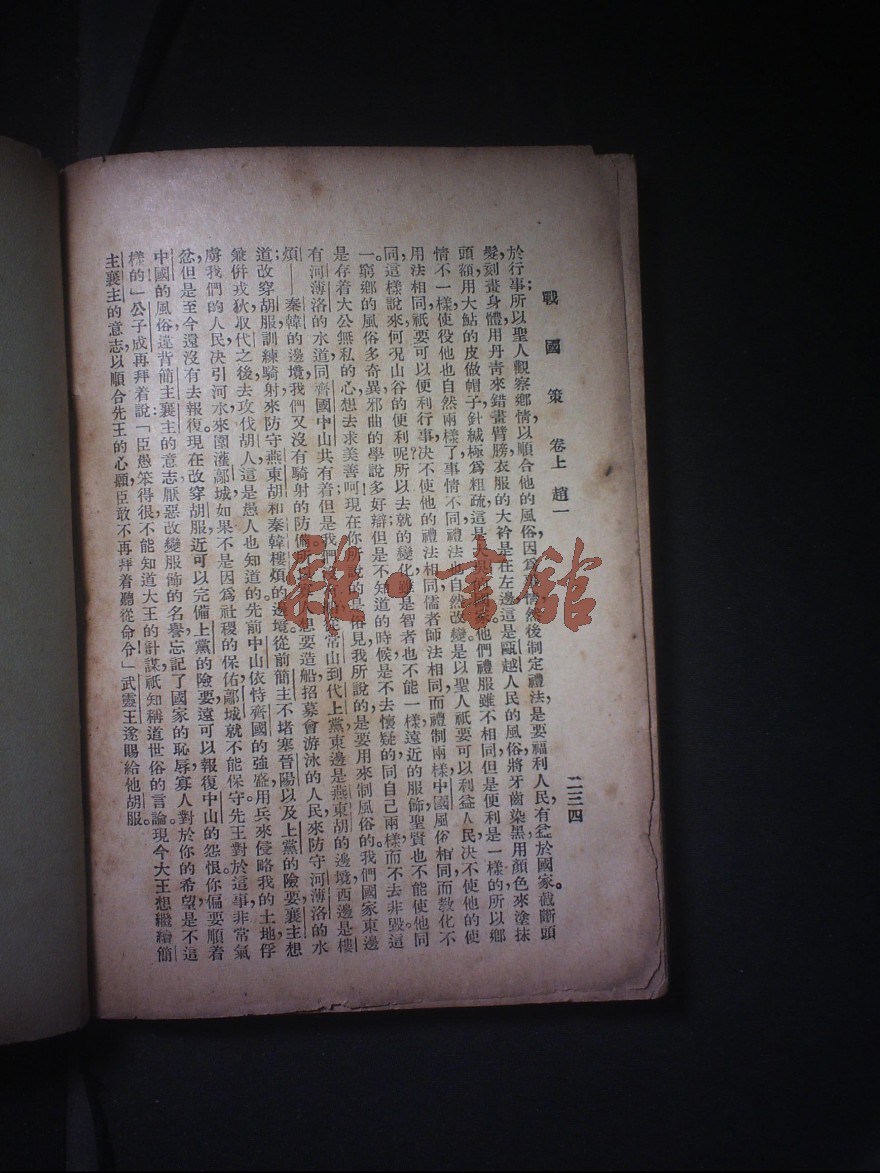 戰國策 卷上 趙一
二三四
於行事;所以聖人觀察鄉情以順合他的風俗,因爲 情然後制定禮法,是要福利人民,有益於國家。截斷頭
髮,刻畫身體,用丹青來錯畫臂膀,衣服的大衿是在左邊,這是甌越人民的風俗,將牙齒染黑,用顏色來塗抹
頭額,用大鮎的皮做帽子,針緘極爲粗疏,這是大吳的 他們禮服雖不相同,但是便利是一樣的,所以鄉
情不一樣,使役他也自然兩樣了,事情不同,禮法也自然改變。是以聖人祇要可以利益人民,決不使他的使
用法相同,祇要可以便利行事,決不使他的禮法相同,儒者師法相同,而禮制兩樣,中國風俗相同,而教化不
同,這樣說來,何況山谷的便利呢?所以去就的變化,雖是智者也不能一樣,遠近的服飾,聖賢也不能使他同
一。窮鄉的風俗多奇異,邪曲的學說多好辯,但是不知道的時候,是不去懷疑的,同自己兩樣,而不去非毀,這
是存着大公無私的心,想去求美善呵!現在你所說的是俗見,我所說的是要用來制風俗的。我們國家東邊
有河薄洛的水道,同齊國中山共有着;但是我們 從常山到代上黨,東邊是燕東胡的邊境,西邊是樓
煩——秦韓的邊境,我們又沒有騎射的防備。所以 想要造船,招募會游泳的人民,來防守河薄洛的水
道;改穿胡服,訓練騎射,來防守燕東胡和秦韓樓煩的邊境。從前簡主不堵塞晉陽以及上黨的險要,襄主想
兼併戎狄,取代之後去攻伐胡人,這是愚人也知道的。先前中山依恃齊國的強盛用兵來侵略我的土地,俘
虜我們的人民,決引河水來圍灌鄗城,如果不是因爲社稷的保佑,鄗城就不能保守。先王對於這事非常氣
忿,但是至今還沒有去報復。現在改穿胡服,近可以完備上黨的險要,遠可以報復中山的怨恨。你偏要順着
中國的風俗,違背簡主襄主的意志,厭惡改變服飾的名譽,忘記了國家的恥辱,寡人對於你的希望是不這
樣的」公子成再拜着說:「臣愚笨得很,不能知道大王的計謀,祇知稱道世俗的言論。現今大王想繼續簡
主襄主的意志,以順合先王的心願,臣敢不再拜着聽從命令」武靈王遂賜給他胡服。
雜·書館